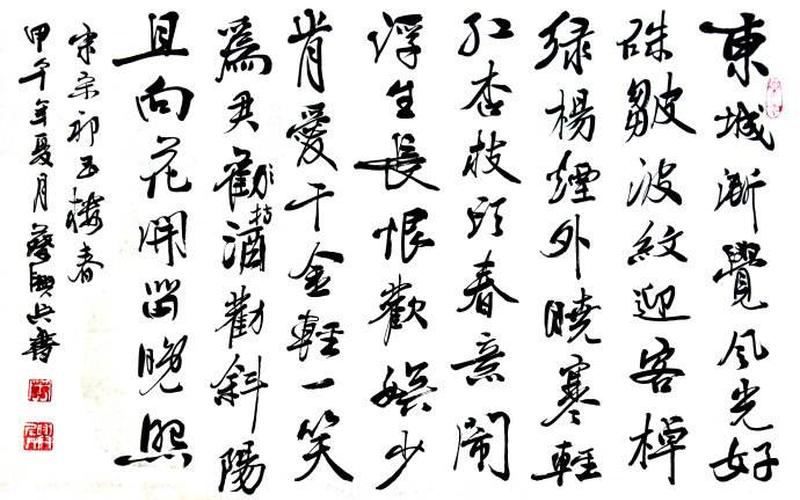 東城漸覺風光好
硃皺波紋迎客棹
绿楊煙外曉寒輕
红杏枝頭春意鬧
浮生長恨歡娱少
肯愛千金輕一笑
爲君勸持酒勸斜陽
且向花開留晚照
宋宗祁玉樓春
甲午年夏月蔡興兵書